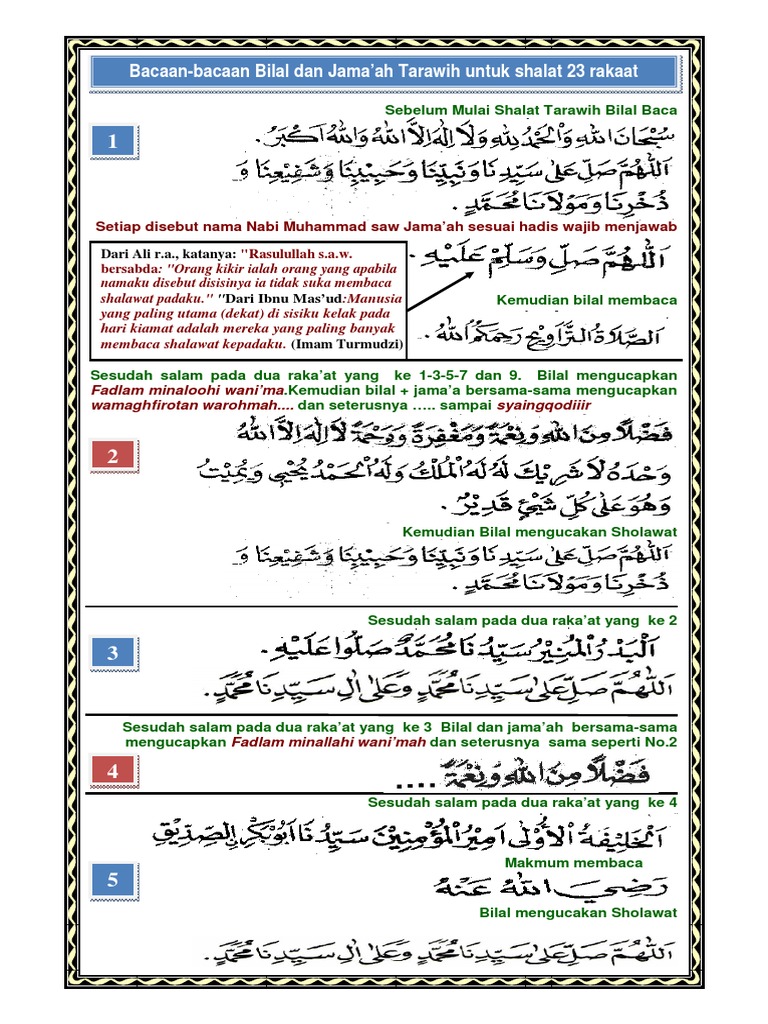 Bacaan-bacaan Bilal dan Jama’ah Tarawih untuk shalat 23 rakaat
Sebelum Mulai Shalat Tarawih Bilal Baca
1
سُبْحَانَ اللهِ وَالْحَمْدُ لِلهِ وَلَا إِلٰهَ إِلَّا اللهُ وَاللهُ أَكْبَرُ.
اَللّٰهُمَّ صَلِّ عَلٰى سَيِّدِنَا وَنَبِيِّنَا وَحَبِيْبِنَا وَشَفِيْعِنَا وَ
ذُخْرِنَا وَمَوْلَانَا مُحَمَّدٍ.
Setiap disebut nama Nabi Muhammad saw Jama’ah sesuai hadis wajib menjawab
Dari Ali r.a., katanya: "Rasulullah s.a.w.
bersabda: "Orang kikir ialah orang yang apabila
namaku disebut disisinya ia tidak suka membaca
shalawat padaku." "Dari Ibnu Mas’ud:Manusia
yang paling utama (dekat) di sisiku kelak pada
hari kiamat adalah mereka yang paling banyak
membaca shalawat kepadaku. (Imam Turmudzi)
اَللّٰهُمَّ صَلِّ وَسَلِّمْ عَلَيْهِ.
Kemudian bilal membaca
اَلصَّلَاةُ التَّرَاوِيْحِ رَحِمَكُمُ اللهُ.
Sesudah salam pada dua raka’at yang ke 1-3-5-7 dan 9. Bilal mengucapkan
Fadlam minaloohi wani’ma.Kemudian bilal + jama’a bersama-sama mengucapkan
wamaghfirotan warohmah.... dan seterusnya ….. sampai syaingqodiiir
2
فَضْلًا مِنَ اللهِ وَنِعْمَةً وَمَغْفِرَةً وَرَحْمَةً لَا إِلٰهَ إِلَّا اللهُ
وَحْدَهُ لَا شَرِيْكَ لَهُ لَهُ الْمُلْكُ وَلَهُ الْحَمْدُ يُحْيِى وَيُمِيْتُ
وَهُوَ عَلٰى كُلِّ شَيْئٍ قَدِيْرٌ.
Kemudian Bilal mengucakan Sholawat
اَللّٰهُمَّ صَلِّ عَلٰى سَيِّدِنَا وَنَبِيِّنَا وَحَبِيْبِنَا وَشَفِيْعِنَا وَ
ذُخْرِنَا وَمَوْلَانَا مُحَمَّدٍ.
Sesudah salam pada dua raka’at yang ke 2
3
اَلْبَدْرُ الْمُنِيْرُ سَيِّدُنَا مُحَمَّدٌ صَلُّوا عَلَيْهِ.
اَللّٰهُمَّ صَلِّ عَلٰى سَيِّدِنَا مُحَمَّدٍ وَعَلٰى اٰلِ سَيِّدِنَا مُحَمَّدٍ.
Sesudah salam pada dua raka’at yang ke 3 Bilal dan jama’ah bersama-sama
mengucapkan Fadlam minallahi wani’mah dan seterusnya sama seperti No.2
4
فَضْلًا مِنَ اللهِ وَنِعْمَةً ....
Sesudah salam pada dua raka’at yang ke 4
اَلْخَلِيْفَةُ الْأُوْلٰى اَمِيْرُ الْمُؤْمِنِيْنَ سَيِّدُنَا اَبُوْبَكْرٍ الصِّدِّيْقِ
Makmum membaca
5
رَضِيَ اللهُ عَنْهُ
Bilal mengucakan Sholawat
اَللّٰهُمَّ صَلِّ عَلٰى سَيِّدِنَا مُحَمَّدٍ وَعَلٰى اٰلِ سَيِّدِنَا مُحَمَّدٍ.